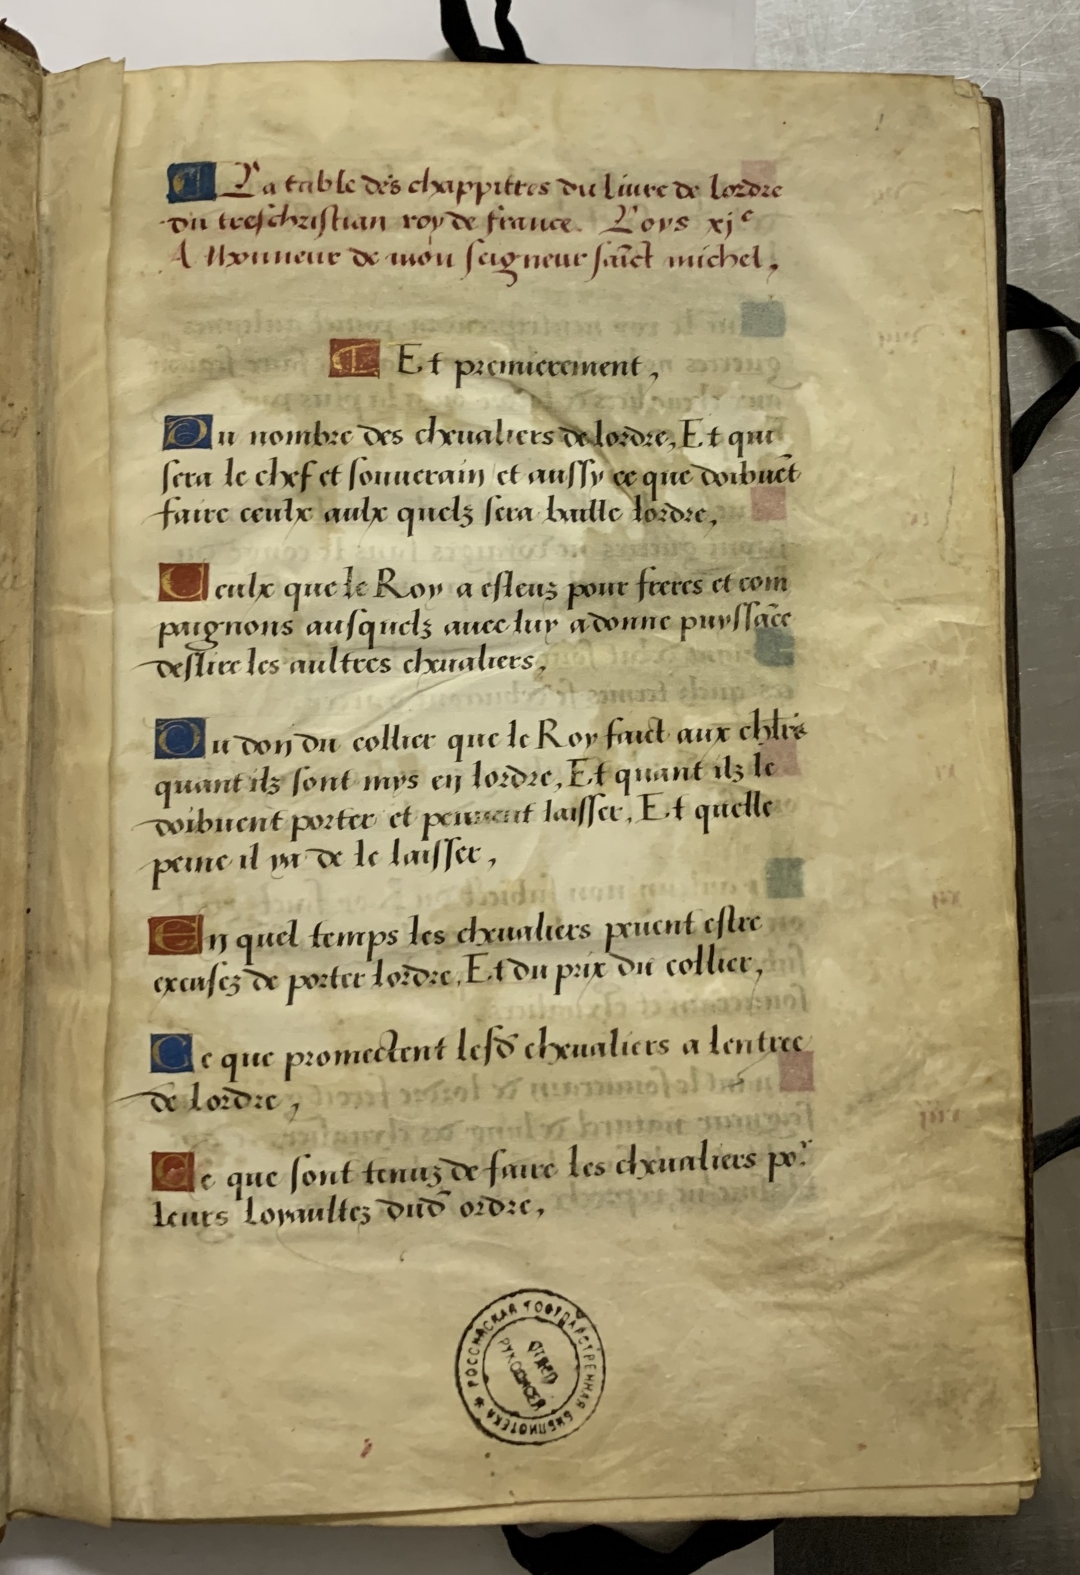 ¶ La table des chappitres du liure de lordre
du treschristian roy de france. Loys xjᵉ
A lhonneur de mōn seigneur sāīct michel,
¶ Et premierement,
Du nombre des cheualiers de lordre, Et qui
sera le chef et souuerain et aussy ce que doibuēt
faire ceulx aulx quelz sera baille lordre,
Ceulx que le Roy a esleuz pour freres et com
paignons ausquelz auec luy a donne puyssāce
deslire les aultres cheualiers,
Du don du collier que le Roy faict aux chlrs
quant ilz sont mys en lordre, Et quant ilz le
doibuent porter et peuuent laisser, Et quelle
peine il ya de le laisser,
En quel temps les cheualiers peuent estre
excusez de porter lordre, Et du prix du collier,
Ce que promectent lesd̄ cheualiers a lentree
de lordre,
Ce que sont tenuz de faire les cheualiers poʳ
leurs loyaultez dud̄ ordre,
РОССИЙСКАЯ ГОСУДАРСТВЕННАЯ БИБЛИОТЕКА
ОТДЕЛ
РУКОПИСЕЙ